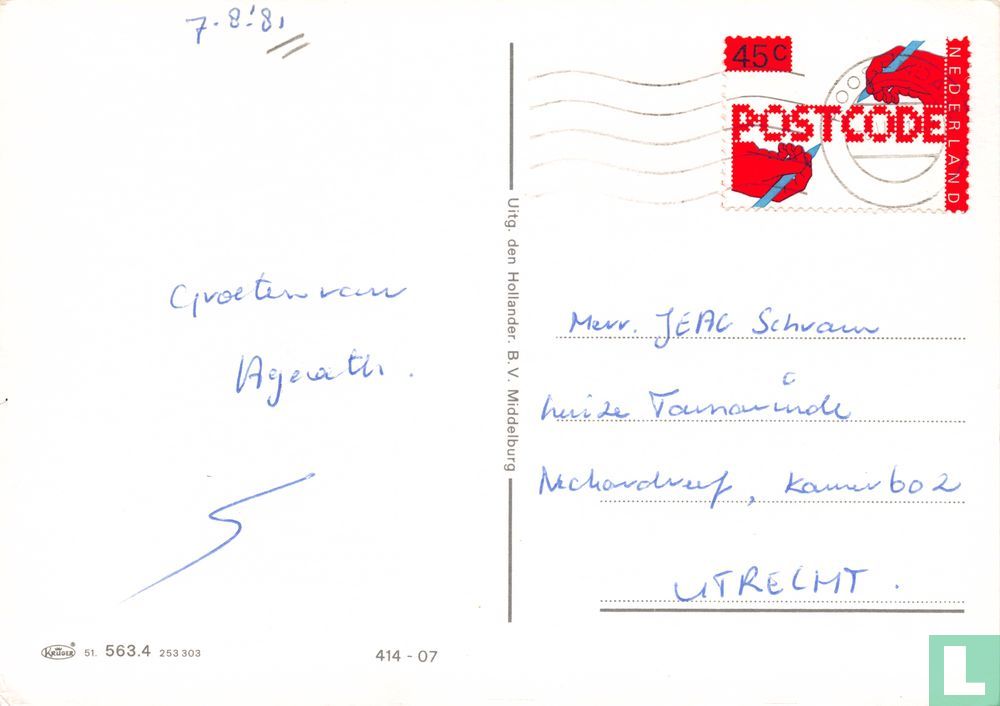 7-8-'81
Groeten van
Agaath.
KRÜGER ® 51. 563.4 253 303
414 - 07
Uitg. den Hollander. B.V. Middelburg
45c
POSTCODE
NEDERLAND
Mevr. JEAC Schram
huize Tamarinde
Neckardreef, kamer 602
UTRECHT.
L